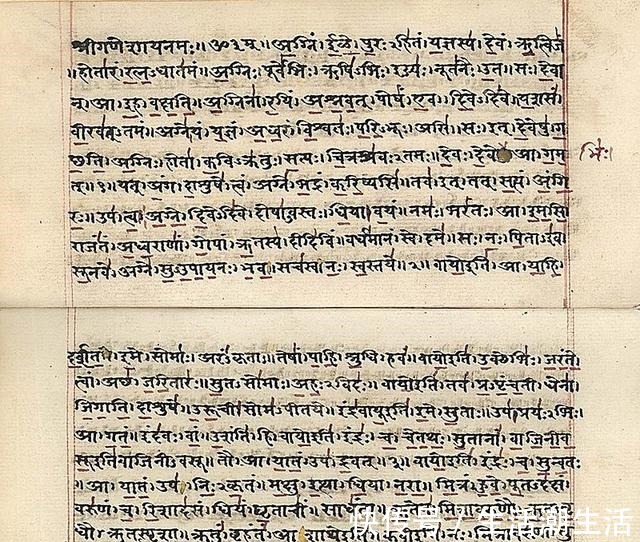 श्रीगणेशायनमः॥ ॐ३म्॥ अग्निं। ईळे। पुरःऽहितं। यज्ञस्य। देवं। ऋत्विजं
॥होतारं। रत्नऽधातमं॥ अग्निः। पूर्वेभिः। ऋषिऽभिः। ईड्यः। नूतनैः। उत॥ सः। देवा
न्। आ। इह। वक्षति॥ अग्निना। रयिं। अश्नवत्। पोषं। एव। दिवेऽदिवे॥ यशसं
वीरवत्ऽतमं॥ अग्ने। यं। यज्ञं। अध्वरं। विश्वतः। परिऽभूः। असि॥ सः। इत्। देवेषु। ग
च्छति॥ अग्निः। होता। कविऽक्रतुः। सत्यः। चित्रश्रवःऽतमः॥ देवः। देवे आ। गम भिः।
त्॥१॥ यत्। अंग। दाशुषे। त्वं। अग्ने। भद्रं। करिष्यसि॥ तव। इत्। तत्। सत्यं। अंगि
रः॥ उप। त्वा। अग्ने। दिवेऽदिवे। दोषाऽवस्तः। धिया। वयं॥ नमः। भरंतः। आ। इमसि॥
राजंतं। अध्वराणां। गोपां। ऋतस्य। दीदिविं॥ वर्धमानं। स्वे। दमे॥ सः। नः। पिताऽइव
सूनवे। अग्ने। सुऽउपायनः। भव॥ सचस्व। नः। स्वस्तये॥२॥ वायो इति। आ। याहि।
दर्शत। इमे। सोमाः। अरंऽकृताः॥ तेषां। पाहि। श्रुधि। हवं॥ वायो इति। उक्थेभिः। जरंते
त्वां। अच्छ। जरितारः॥ सुतऽसोमाः। अहःऽविदः॥ वायो इति। तव। प्रऽपृंचती। धेना
जिगाति। दाशुषे॥ उरूची। सोमऽपीतये॥ इंद्रवायू इति। इमे। सुताः॥ उप। प्रयःऽभिः।
आ। गतं॥ इंदवः। वां। उशंति। हि॥ वायो इति। इंद्रः। च। चेतथः। सुतानां। वाजिनीव
सू इति वाजिनीऽवसू॥ तौ। आ। यातं। उप। द्रवत्॥३॥ वायो इति। इंद्रः। च। सुन्वतः
॥आ। यातं। उप। निःऽकृतं॥ मक्षु। इत्था। धिया। नरा॥ मित्रं। हुवे। पूतऽदक्षं
वरुणं। च। रिशादसं॥ धियं। घृताचीं। साधंता॥ ऋतेन। मित्रावरुणौ। ऋत
快传号 / 生活潮生活
धौ। ऋतऽस्पृशा॥ क्रतुं। बृहंतं।